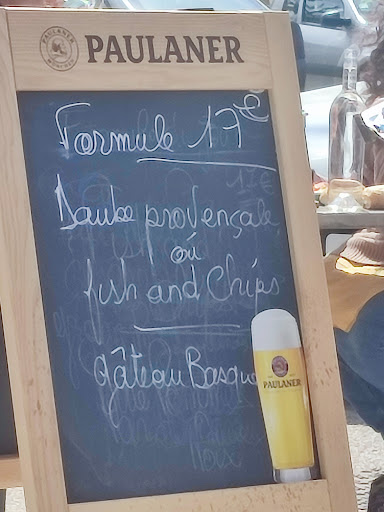 PAULANER
Formule 17€
Daube provençale
où
fish and Chips
gâteau Basque
PAULANER